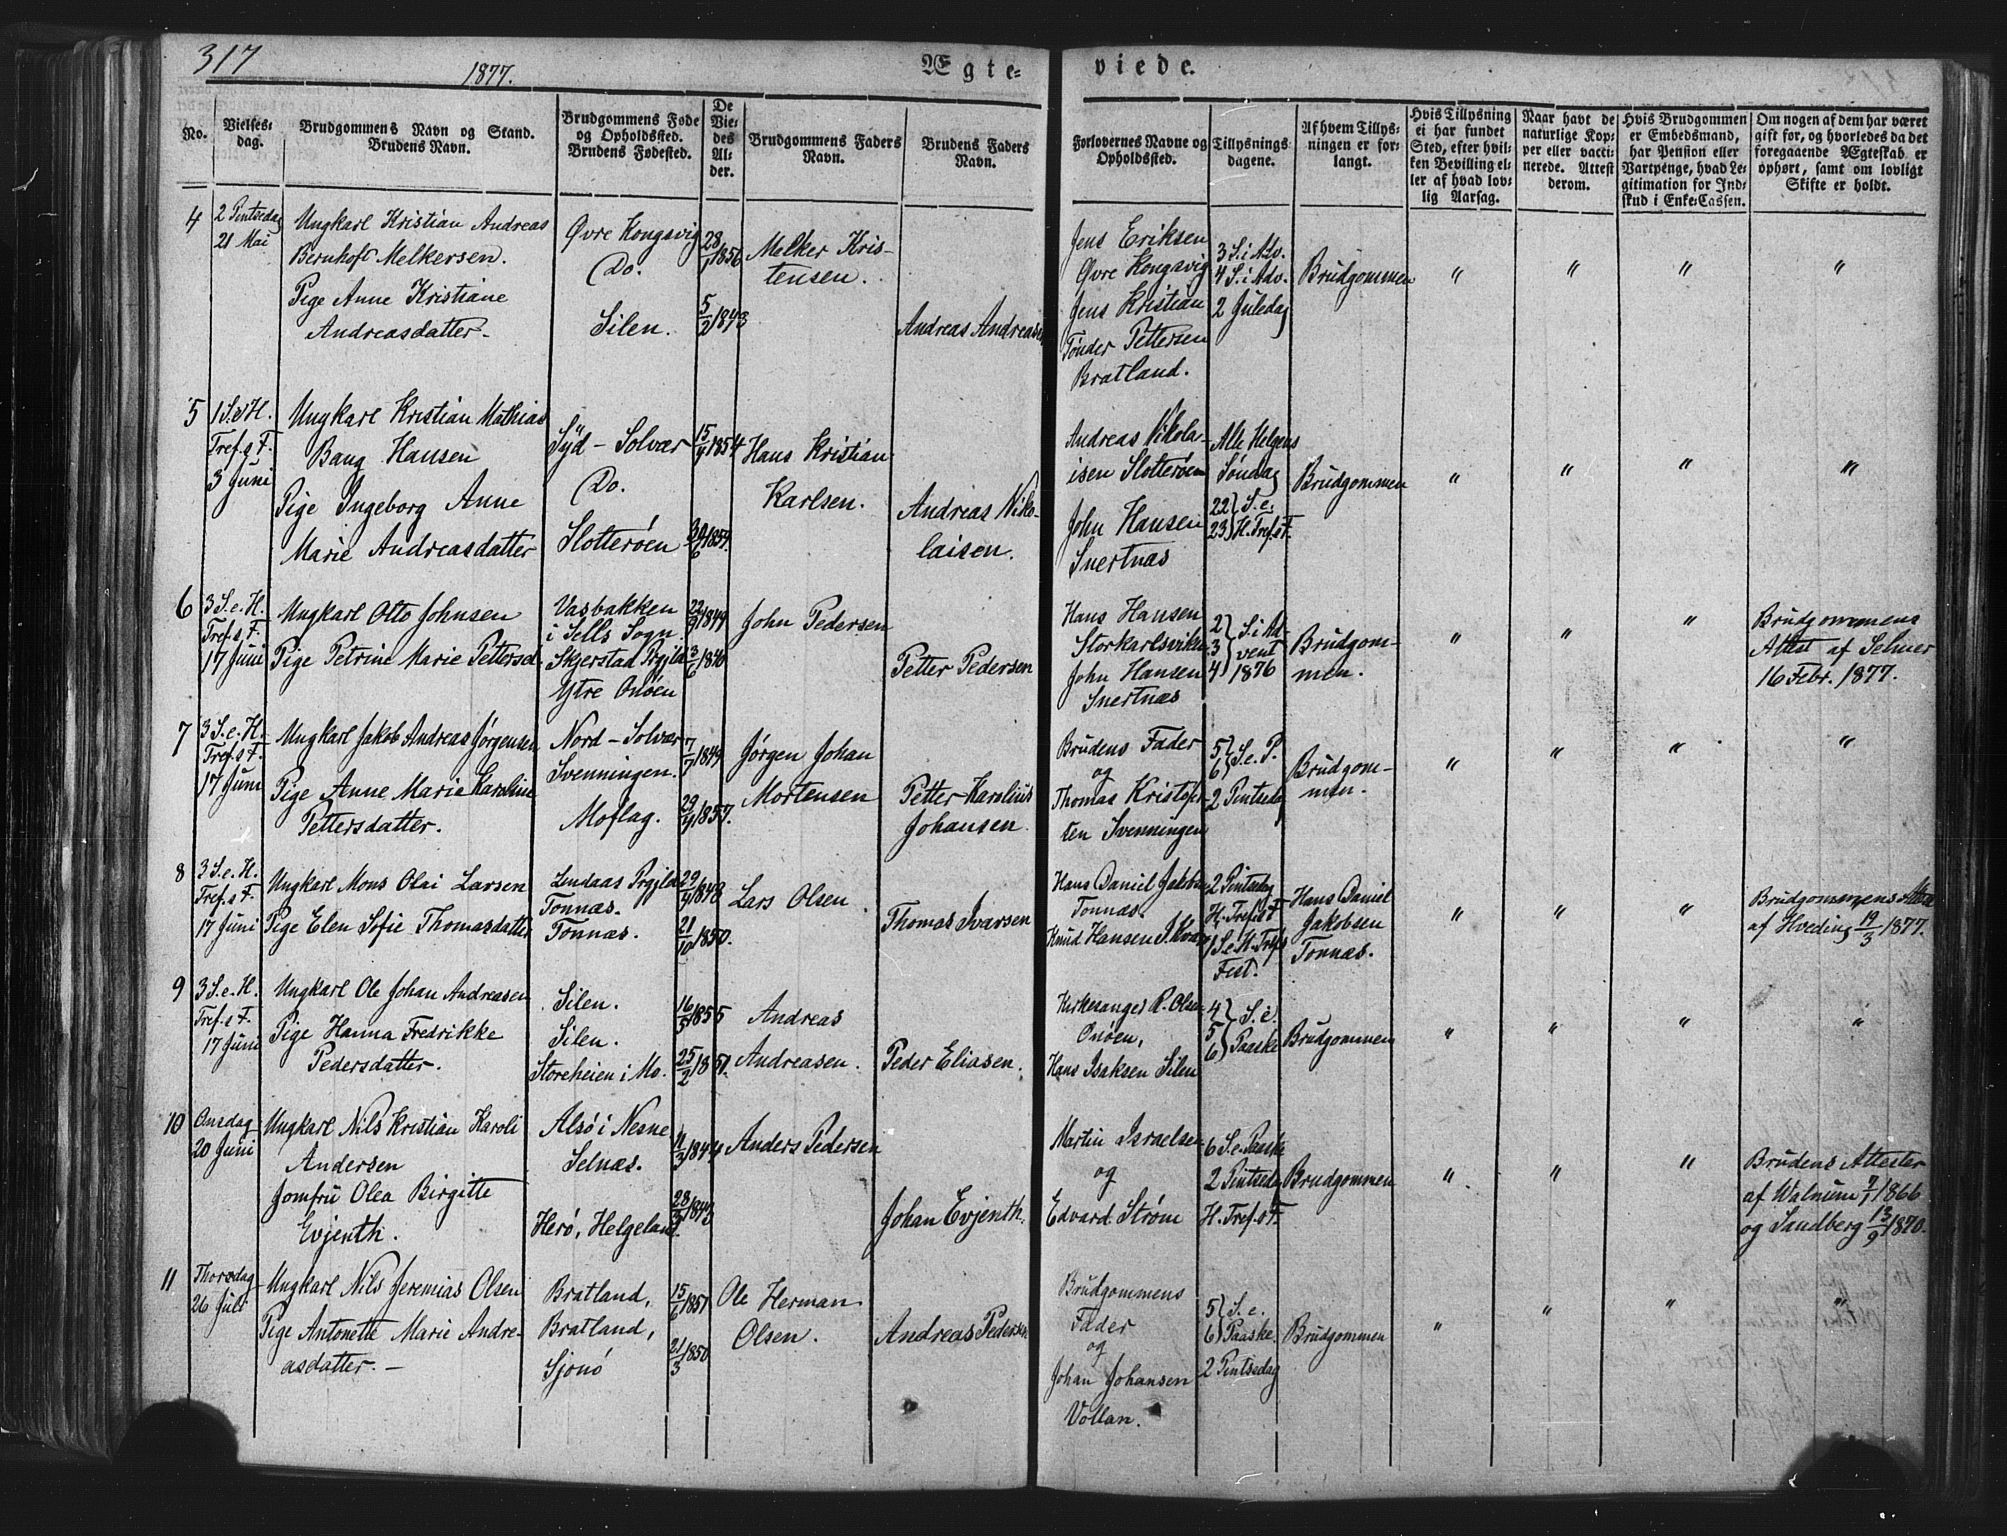 317
1877.
Ægte-
viede.
No.
Vielses-
dag.
Brudgommens Navn og Stand.
Brudens Navn.
Brudgommens Føde
og Opholdssted.
Brudens Fødested.
De
Vie-
des
Al-
der.
Brudgommens Faders
Navn.
Brudens Faders
Navn.
Forlovernes Navne og
Opholdssted.
Tillysnings-
dagene.
Af hvem Tillys-
ningen er for-
langt.
Hvis Tillysning
ei har fundet
Sted, efter hvil-
ken Bevilling el-
ler af hvad lov-
lig Aarsag.
Naar havt de
naturlige Kop-
per eller vacci-
nerede. Attest
derom.
Hvis Brudgommen
er Embedsmand,
har Pension eller
Vartpenge, hvad Le-
gitimation for Ind-
skud i Enke-Cassen.
Om nogen af dem har været
gift før, og hvorledes da det
foregaaende Ægteskab er
ophørt, samt om lovligt
Skifte er holdt.
4
2 Pintsedag
21 Mai
Ungkarl Kristian Andreas
Bernhoft Melkersen.
Pige Anne Kristiane
Andreasdatter.
Øvre Kongsvig
Do.
Silen.
28/1 1856
5/2 1843
Melker Kris-
tensen.
Andreas Andreasen
Jens Eriksen
Øvre Kongsvig
Jens Kristian
Tønder Pettersen
Bratland.
3 S. i Adv.
4 S. i Adv.
2 Juledag
Brudgommen
" " " "
5
1 S. e H.
Tref.s F.
3 Juni
Ungkarl Kristian Mathias
Bang Hansen
Pige Ingeborg Anne
Marie Andreasdatter
Syd-Solvær
Do.
Slotterøen
1854
1854.
Hans Kristian
Karlsen.
Andreas Niko-
laisen.
Andreas Nikola-
isen Slotterøen
John Hansen
Snertnæs
Alle Helgens
Søndag
22 } S. e.
23 } H. Tref.s F.
Brudgommen
" " " "
6
3 S. e. H.
Tref.s F.
17 Juni
Ungkarl Otto Johnsen
Pige Petrine Marie Pettersd.
Vasbakken
i Sells Sogn.
Skjerstad Prgjld.
Ytre Onøen
1849
3/6 1840
John Pedersen
Petter Pedersen
Hans Hansen
Storkarlsviken
John Hansen
Snertnæs
2 } S. i Ad-
3 } vent
4 } 1876
Brudgom-
men.
" " "
Brudgommens
Attest af Selmer
16 Febr. 1877.
7
3 S. e. H.
Tref.s F.
17 Juni
Ungkarl Jakob Andreas Jørgensen
Pige Anne Marie Karoline
Pettersdatter.
Nord-Solvær
Svenningen.
Moflag.
7/7 1849
1857.
Jørgen Johan
Mortensen
Petter Karolius
Johansen.
Brudens Fader
og
Thomas Kristof-
ten Svenningen
5 } S. e. P.
6 }
2 Pintsedag
Brudgom-
men.
" " " "
8
3 S. e. H.
Tref.s F.
17 Juni
Ungkarl Mons Olai Larsen
Pige Elen Sofie Thomasdatter
Lindaas Prgjld
Tonnæs.
Tonnæs.
1848
21/10 1850.
Lars Olsen.
Thomas Ivarsen
Hans Daniel Jakobsen
Tonnæs.
Knud Hansen
2 Pintsedag
H. Tref.s F.
1 S. e. H. Tref.s
Fest.
Hans Daniel
Jakobsen
Tonnæs.
" " "
Brudgommens Attest
af Hveding 19/3 1877.
9
3 S. e. H.
Tref.s F.
17 Juni
Ungkarl Ole Johan Andreasen
Pige Hanna Fredrikke
Pedersdatter.
Silen.
Silen.
Storeheien i Mo.
16/3 1855
25/2 1851.
Andreas
Andreasen.
Peder Eliasen.
Kirkesanger R. Olsen
Onøen,
Hans Isaksen Silen
4 } S. e.
5 }
6 } Paaske
Brudgommen
" " " "
10
Onsdag
20 Juni
Ungkarl Nils Kristian Karoli
Andersen
Jomfru Olea Birgitte
Evjenth.
Alsø i Nesne
Selnæs.
Herø, Helgeland.
11/3 1844
28/3 1843
Anders Pedersen
Johan Evjenth.
Martin Israelsen
og
Edvard Strøm
6 S. e. Paaske
2 Pintsedag
H. Tref.s F.
Brudgommen
" " "
Brudens Attester
af Walnum 7/7 1866
og Sandberg 13/9 1870.
11
Thorsdag
26 Juli
Ungkarl Nils Jeremias Olsen
Pige Antonette Marie Andre-
asdatter. -
Bratland,
Bratland,
Sjonø
15/6 1851
21/3 1850
Ole Herman
Olsen.
Andreas Pedersen
Brudgommens
Fader
og
Johan Johansen
Vollan.
5 } S. e.
6 } Paaske.
2 Pintsedag
Brudgommen
" " " "